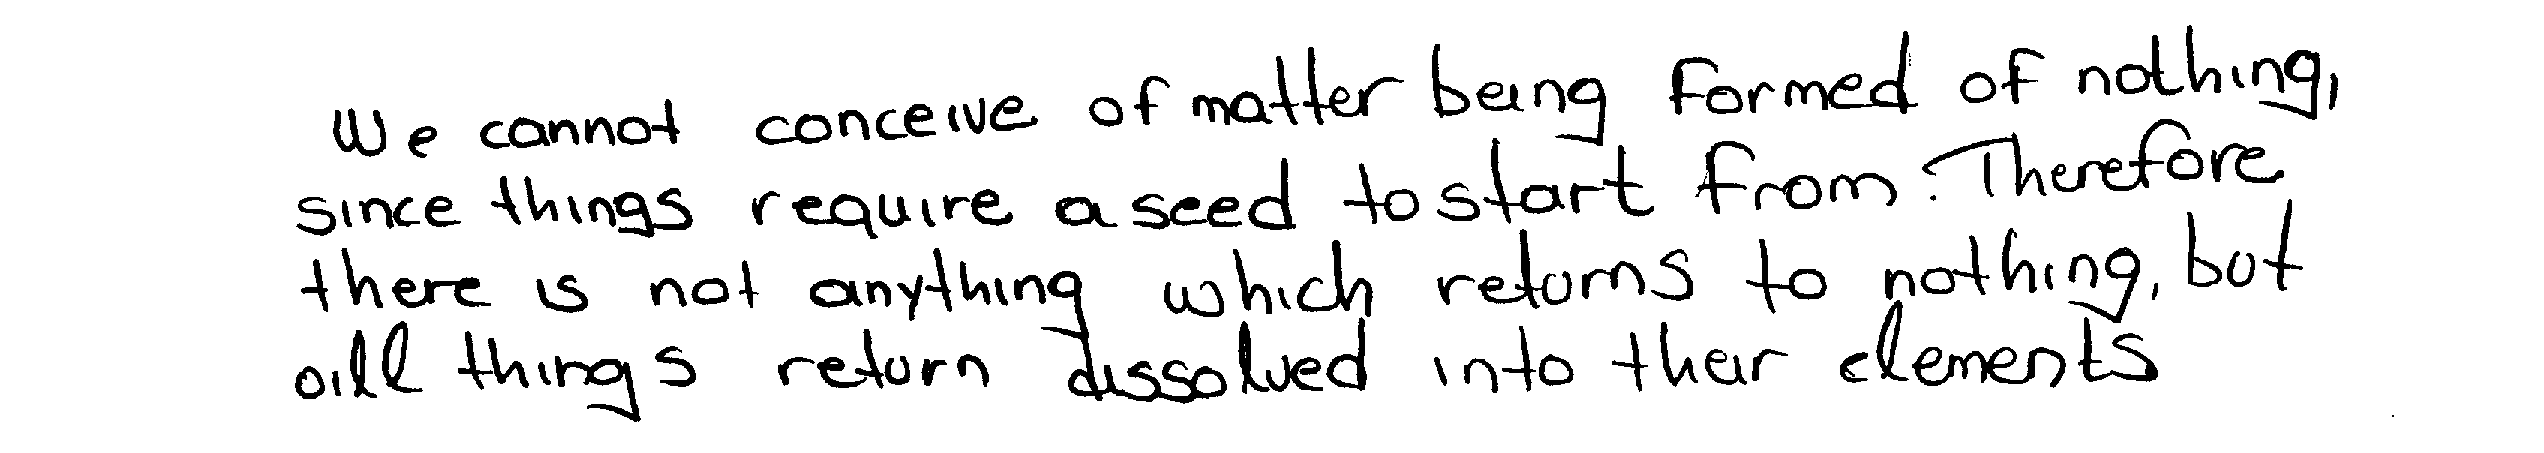 We cannot conceive of matter being formed of nothing,
since things require a seed to start from. Therefore
there is not anything which returns to nothing, but
all things return dissolved into their elements